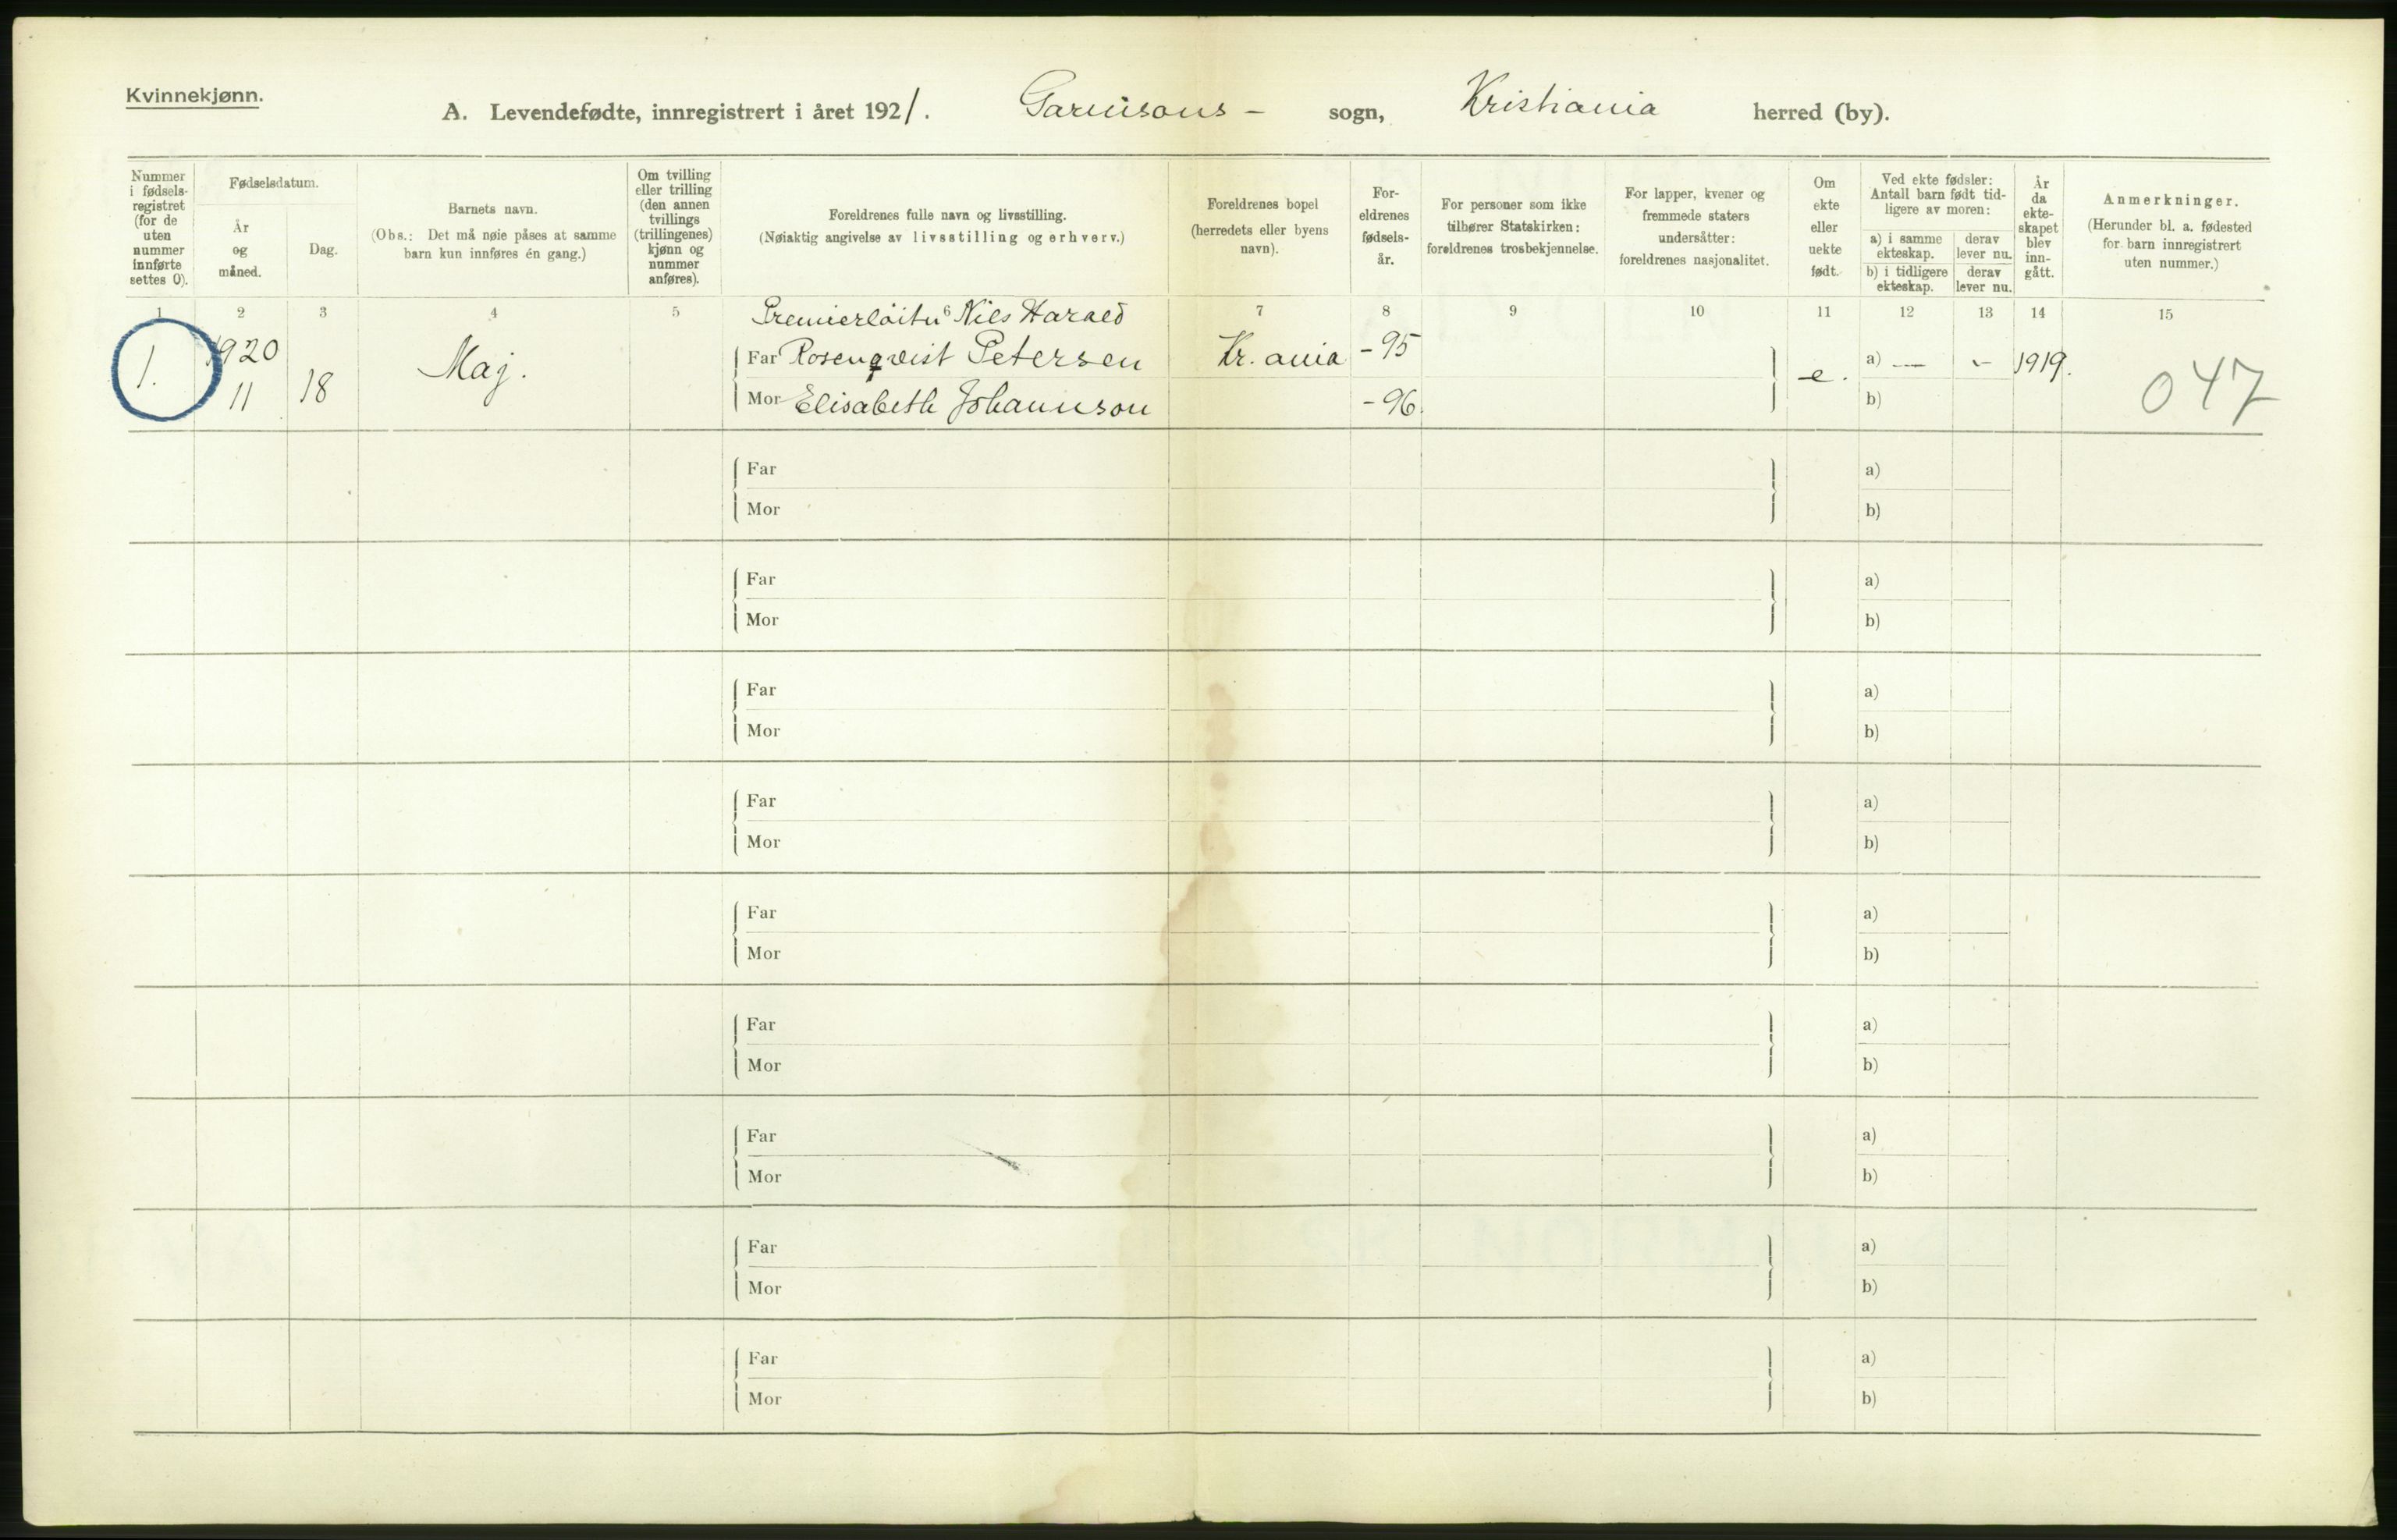 Kvinnekjønn.
A. Levendefødte, innregistrert i året 1921. Garnisons - sogn, Kristiania herred (by).
Nummer i fødsels-registret (for de uten nummer innførte settes 0).
Fødselsdatum.
År og måned.
Dag.
Barnets navn.
(Obs.: Det må nøie påses at samme barn kun innføres én gang.)
Om tvilling eller trilling (den annen tvillings (trillingenes) kjønn og nummer anføres).
Foreldrenes fulle navn og livsstilling.
(Nøiaktig angivelse av livsstilling og erhverv.)
Foreldrenes bopel (herredets eller byens navn).
For-eldrenes fødsels-år.
For personer som ikke tilhører Statskirken: foreldrenes trosbekjennelse.
For lapper, kvener og fremmede staters undersåtter: foreldrenes nasjonalitet.
Om ekte eller uekte født.
Ved ekte fødsler: Antall barn født tid-ligere av moren:
a) i samme ekteskap. derav lever nu.
b) i tidligere ekteskap. derav lever nu.
År da ekte-skapet blev inn-gått.
Anmerkninger.
(Herunder bl. a. fødested for barn innregistrert uten nummer.)
1 2 3 4 5 6 7 8 9 10 11 12 13 14 15
Premierløitn Nils Harald
1. 1920 11 18 Maj. Far Rosenqvist Petersen Kr. ania - 95 e. a) — - 1919. 047
Mor Elisabeth Johannson - 96. b)
Far a)
Mor b)
Far a)
Mor b)
Far a)
Mor b)
Far a)
Mor b)
Far a)
Mor b)
Far a)
Mor b)
Far a)
Mor b)
Far a)
Mor b)
Far a)
Mor b)